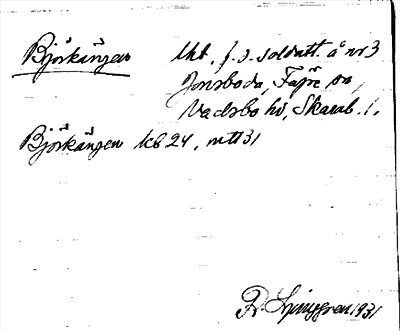 Björkängen lkb. f.d. soldatt. å nr 3
Jonsboda, Fägre sn,
Vadsbo hd, Skarab. l.
Björkängen kb 24, mtt 31
Fr. Ljunggren 1931